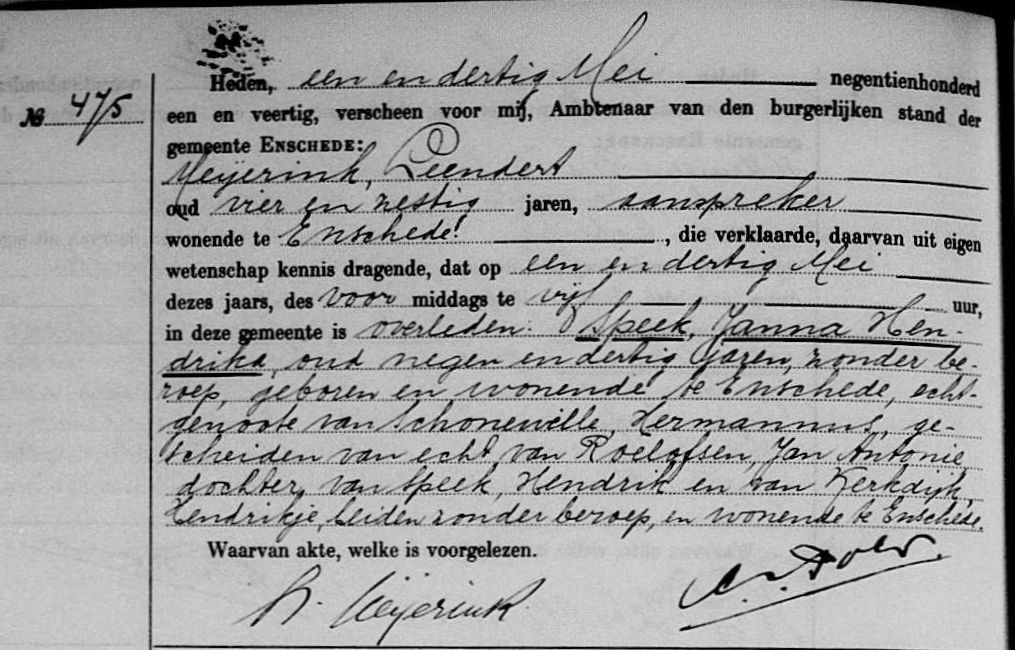 Heden, een en dertig Mei negentienhonderd
№ 475
een en veertig, verscheen voor mij, Ambtenaar van den burgerlijken stand der
gemeente ENSCHEDE:
Meijerink, Leendert
oud vier en zestig jaren, aanspreker
wonende te Enschede, die verklaarde, daarvan uit eigen
wetenschap kennis dragende, dat op een en dertig Mei
dezes jaars, des voor middags te vijf uur,
in deze gemeente is overleden: Speek, Janna Hen-
drika, oud negen en dertig jaren, zonder be-
roep, geboren en wonende te Enschede, echt-
genoote van Schonewille, Hermannus, ge-
scheiden van echt van Roelofsen, Jan Antonie,
dochter van Speek, Hendrik en van Kerkdijk,
Hendrikje, beiden zonder beroep, en wonende te Enschede.
Waarvan akte, welke is voorgelezen.
Meijerink